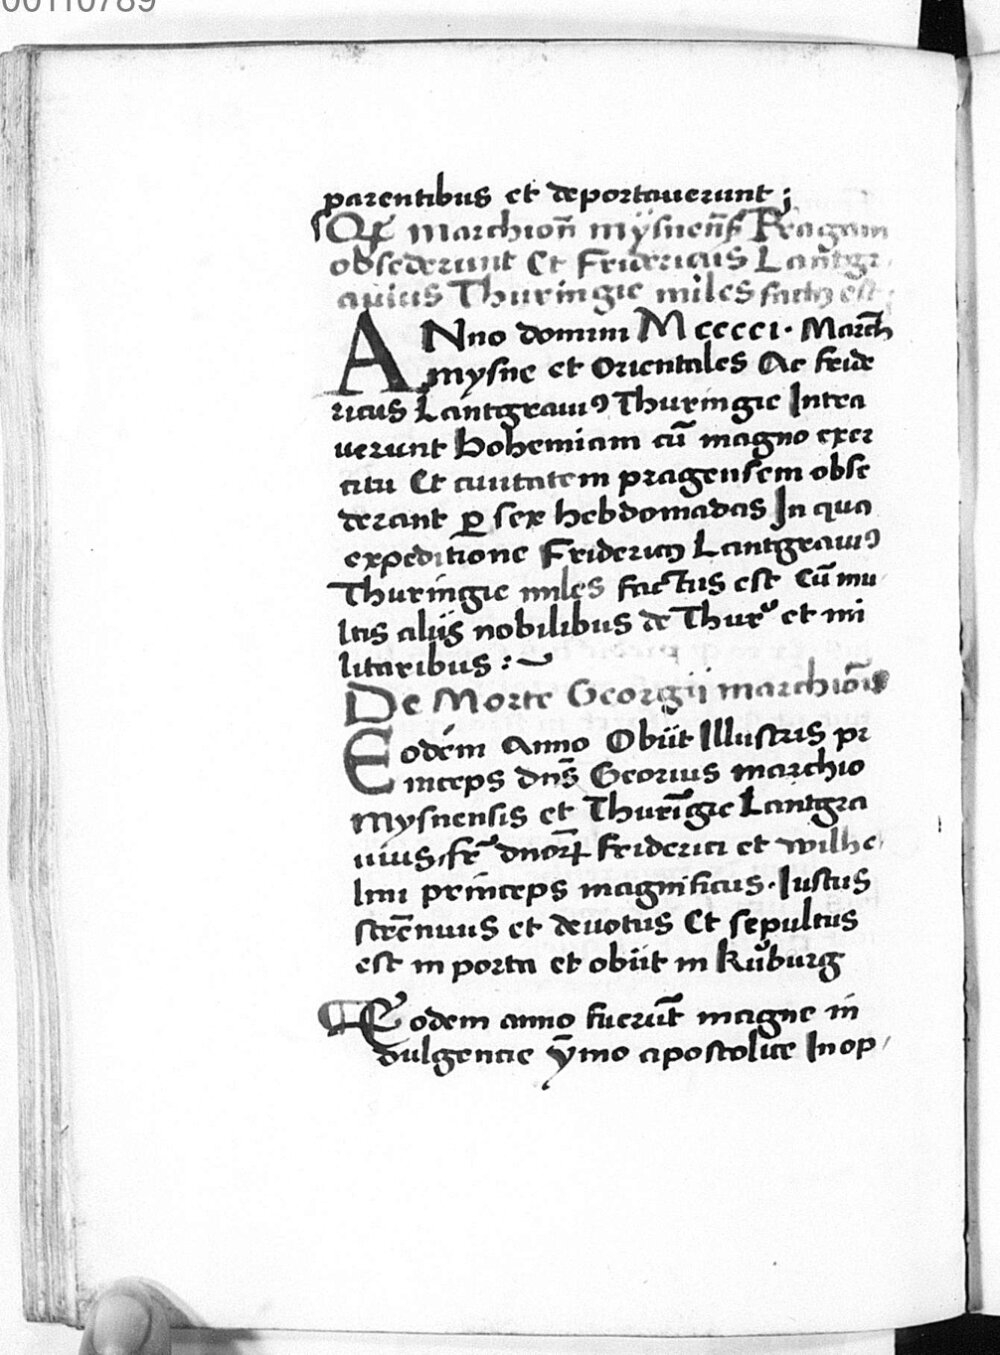 00110789
parentibus et deportauerunt;
Qꝛ marchion̄ mÿsnen̄ß Pragam
obsederunt Et Fridericus Lantgr
auius Thuringie miles factꝯ est;
ANno domini Mcccci. March̄
mysne et Orientales Ac fride
ricus Lantgrauiꝯ Thuringie Intra
uerunt bohemiam cū magno exer
citu Et ciuitatem pragensem obse
derant ꝑ sex hebdomadas In qua
expeditione Fridericꝯ Lantgrauiꝯ
Thuringie miles factus est Cū mu
ltis alijs nobilibus de Thur et mi
litaribus :~
De Morte Georgij marchiōis
Eodem Anno Obijt Illustris pr
inceps dn̄s Georius marchio
Mysnensis et Thurīgie Lantgra
uius, fr̄ dnoꝝ friderici et wilhe
lmi princeps magnificus. Iustus
strēnuus et deuotus Et sepultus
est in porta et obijt in Kuburg
Eodem anno fuerūt magne in
dulgencie ȳmo apostolice In op